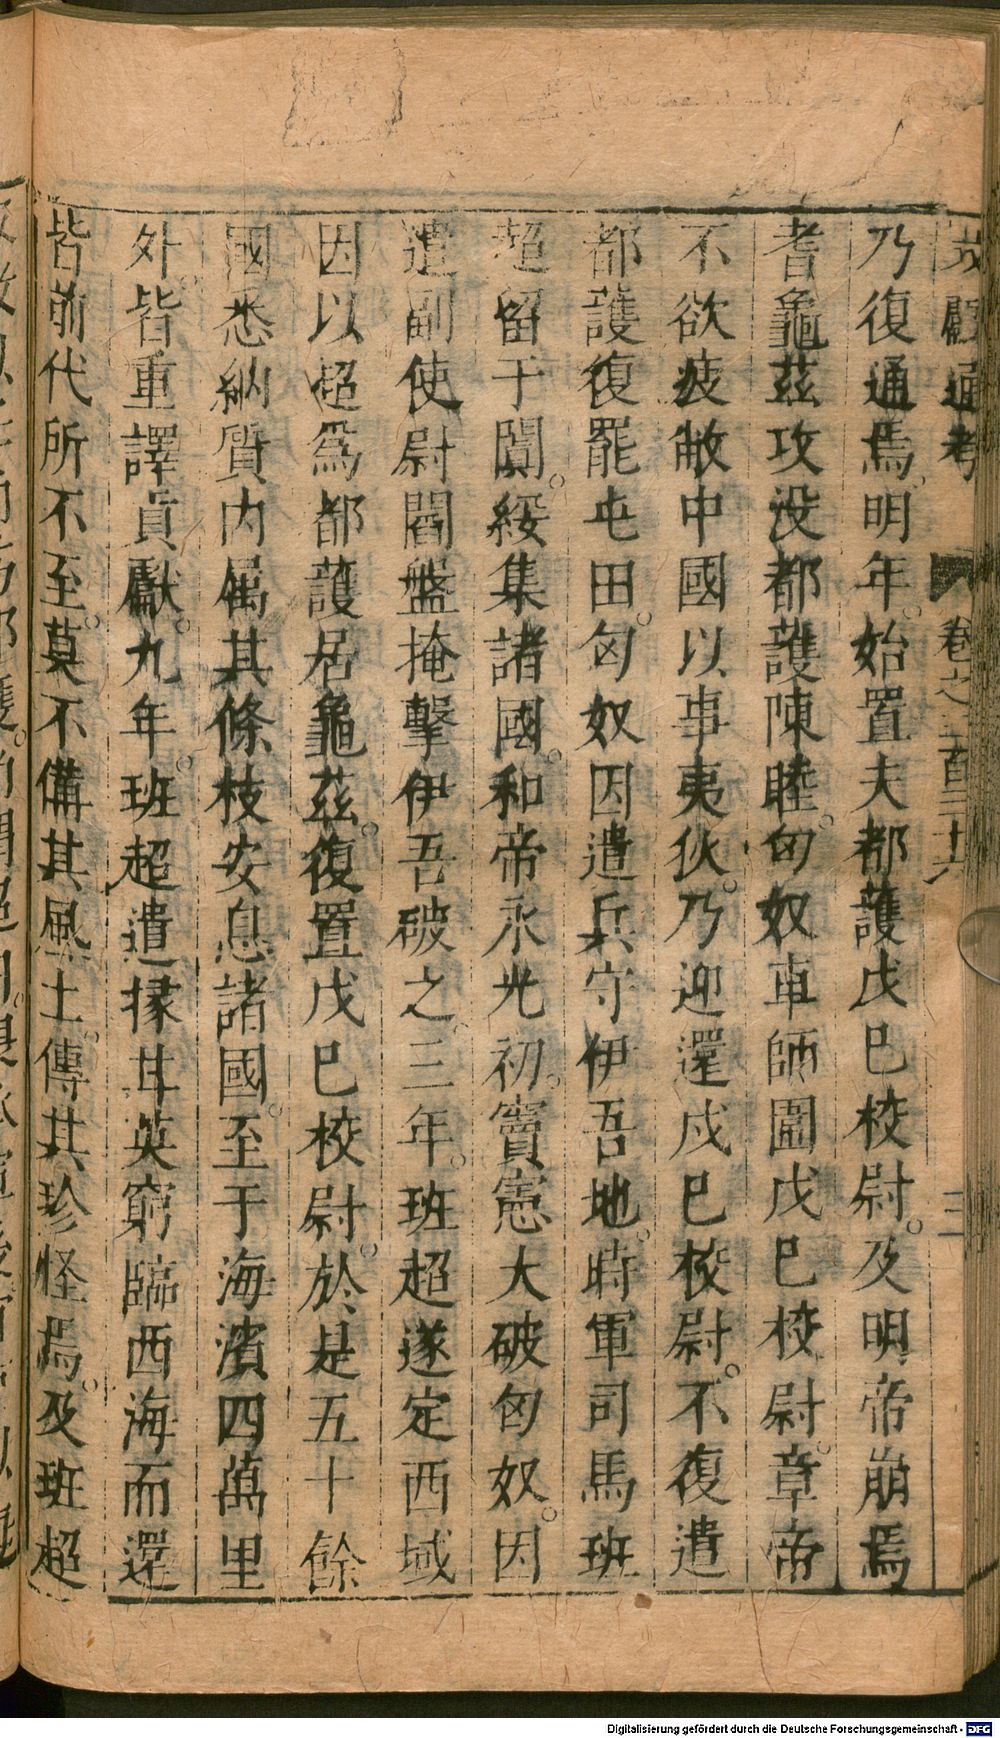 文獻通考 卷之三百三十六 三
乃復通焉明年。始置夫都護戊巳校尉。及明帝崩焉
耆龜茲攻没都護陳睦。匈奴車師圍戊巳校尉。章帝
不欲疲敝中國以事夷狄。乃迎還戊巳校尉。不復遣
都護復罷屯田。匈奴因遣兵守伊吾地。時軍司馬班
超留于闐。綏集諸國。和帝永光初。竇憲大破匈奴。因
遣副使尉閻盤掩擊伊吾破之。三年。班超遂定西域
因以超爲都護居龜茲。復置戊巳校尉。於是五十餘
國悉納質内屬其條枝安息諸國。至于海濱四萬里
外。皆重譯貢獻。九年。班超遣掾甘英窮臨西海而還
皆前代所不至。莫不備其風土。傳其珍怪焉。及班超
Digitalisierung gefördert durch die Deutsche Forschungsgemeinschaft - DFG